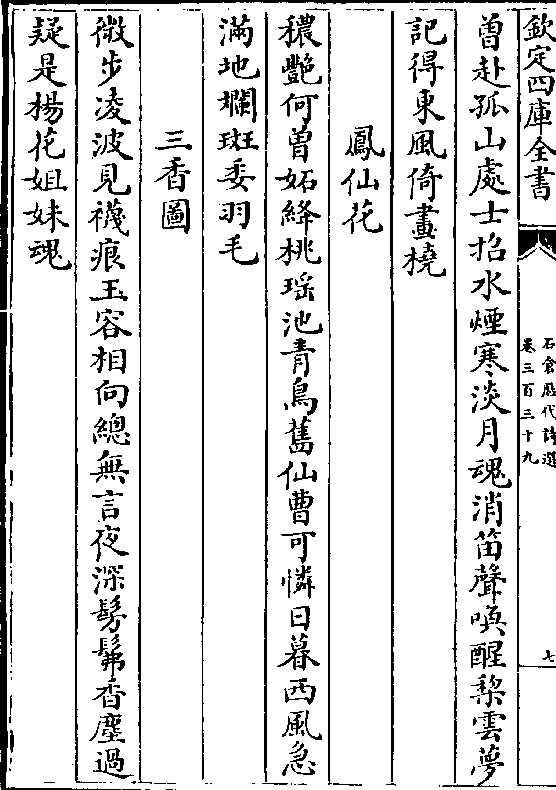 欽定四庫全書
石倉歷代詩選
卷三百三十九
七
曾赴孤山處士招水煙寒淡月魂消笛聲喚醒梨雲夢
記得東風倚畫橈
鳳仙花
穠艷何曾妬絳桃瑶池青鳥舊仙曹可憐日暮西風急
滿地斕斑委羽毛
三香圖
微步凌波見襪痕玉容相向總無言夜深髣髴香塵過
疑是楊花姐妹魂